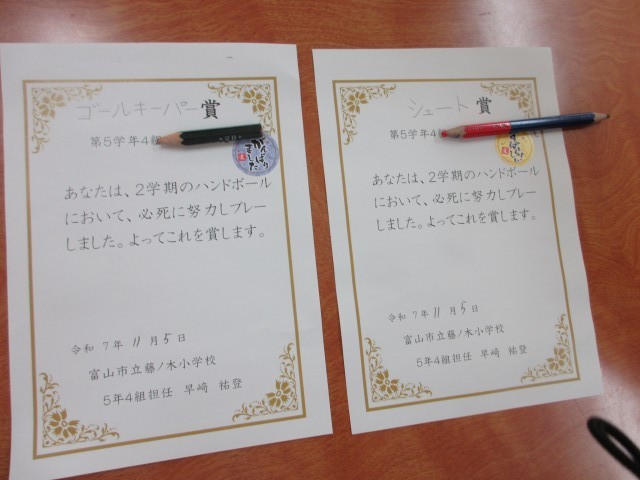 ゴールキーパー賞
第5学年4組
がんばりました
あなたは、2学期のハンドボール
において、必死に努力しプレー
しました。よってこれを賞します。
令和 7年 11月 5日
富山市立藤ノ木小学校
5年4組担任 早﨑 祐登
シュート賞
第5学年4
あなたは、2学期のハンドボール
において、必死に努力しプレー
しました。よってこれを賞します。
令和 7年 11月 5日
富山市立藤ノ木小学校
5年4組担任 早﨑 祐登